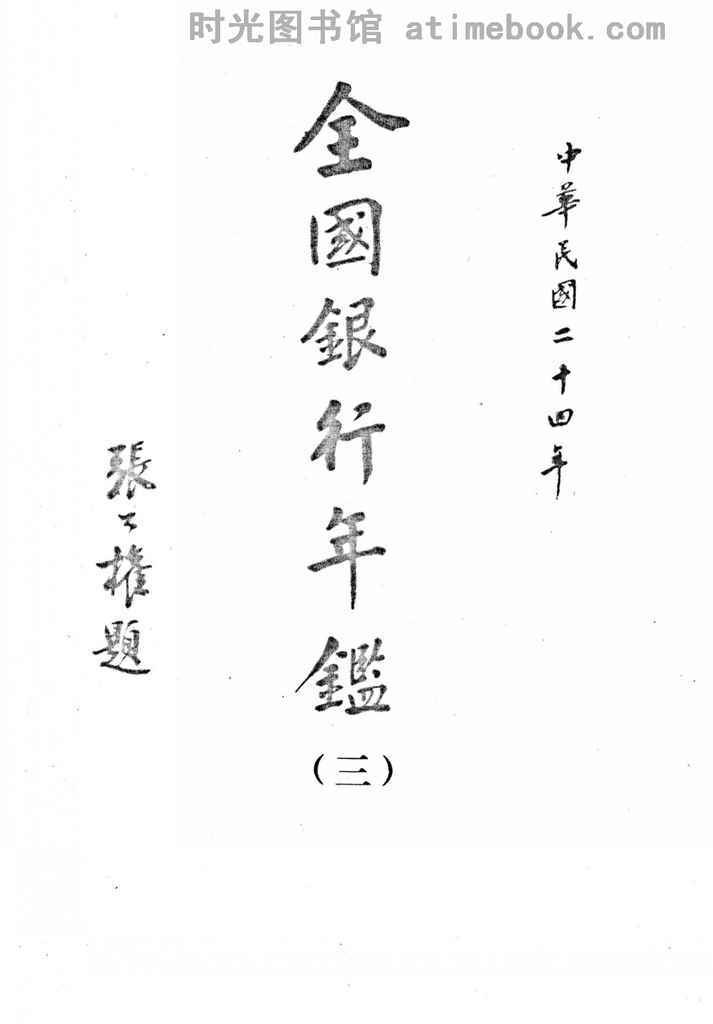 时光图书馆 atimebook.com
中華民國二十四年
全國銀行年鑑
(三)
張公權題